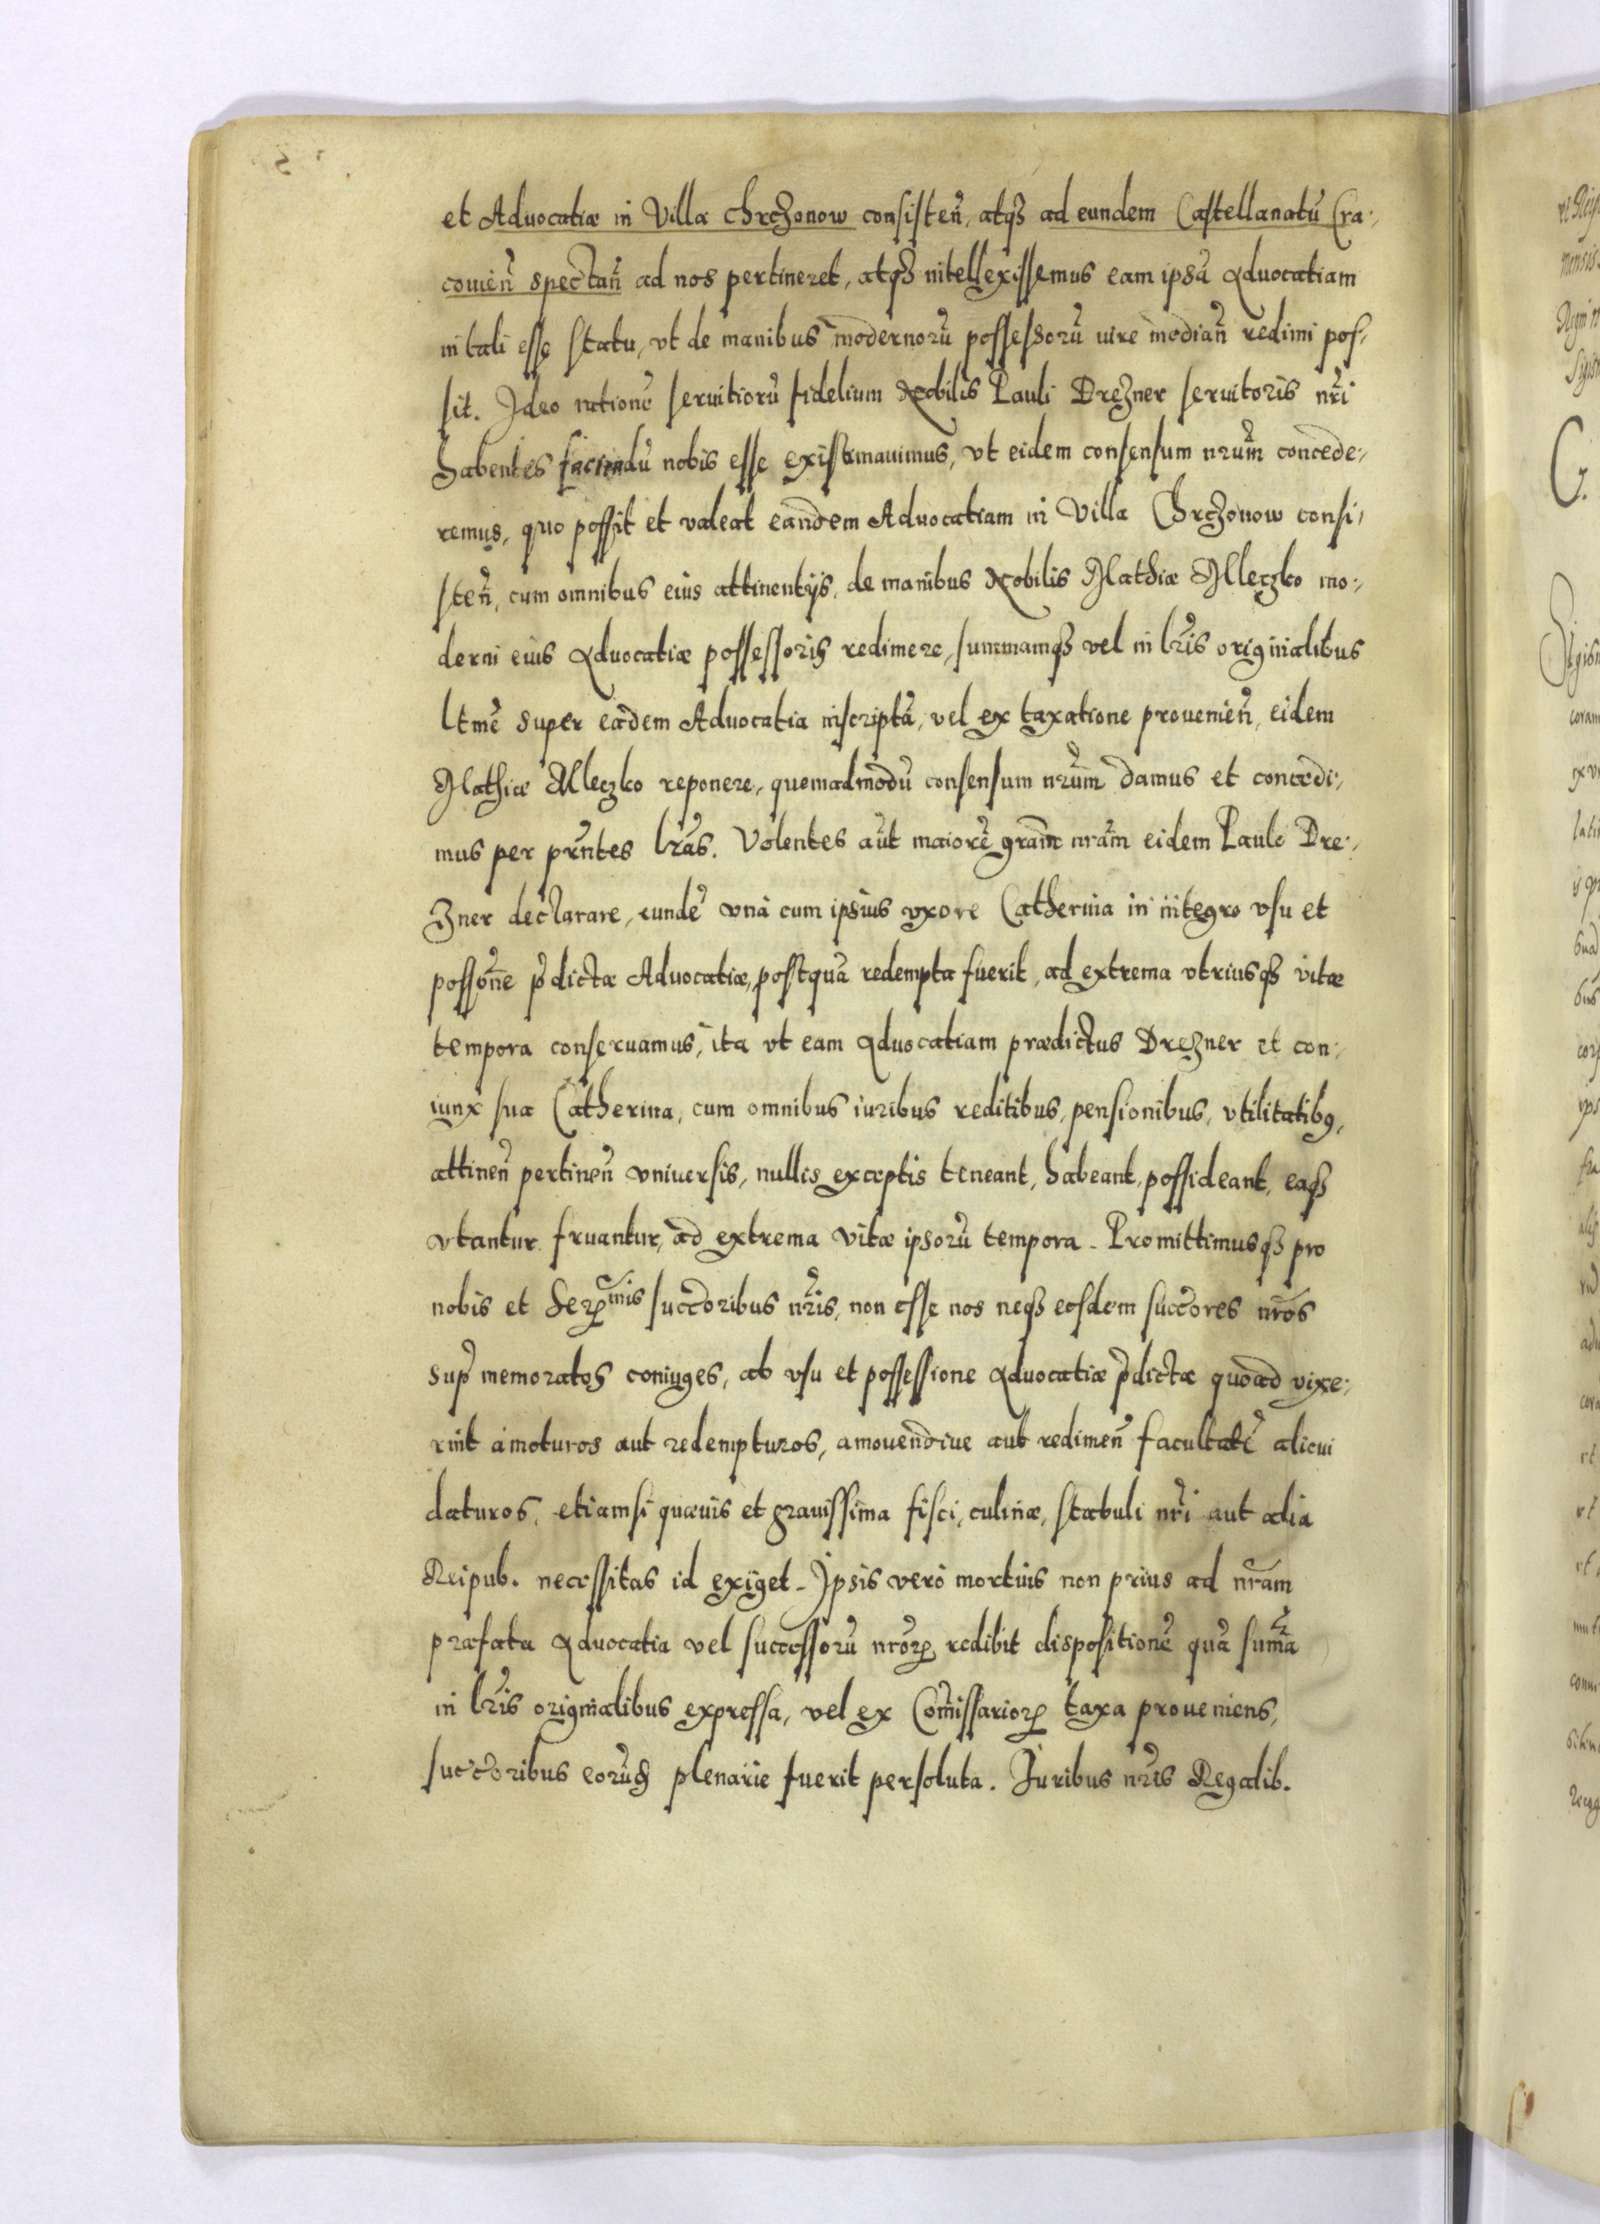 et Advocatiæ in Villa Chrzonow consisteñ, atq3 ad eundem Castellanatũ Cra-
covieñ spectañ ad nos pertineret, atq3 intellexissemus eam ipsã Advocatiam
in tali esse statu, vt de manibus modernorũ possessorũ iure mediañ redimi pos-
sit. Ideo rationẽ servitiorũ fidelium Nobilis Pauli Drezner servitoris nr̃i
habentes faciendũ nobis esse existimavimus, vt eidem consensum nr̃um concede-
remus, quo possit et valeat eandem Advocatiam in Villa Chrzonow consi-
steñ, cum omnibus eius attinentijs, de manibus Nobilis Mathiæ Mleczko mo-
derni eius Advocatiæ possessoris redimere, summamq3 vel in lr̃is originalibus
ltmẽ super eãdem Advocatia inscriptã, vel ex taxatione provenieñ, eidem
Mathiæ Mleczko reponere, quemadmodũ consensum nr̃um damus et concedi-
mus per pr̃ntes lr̃as. Volentes aũt maiorẽ gr̃am nr̃am eidem Paulo Dre-
zner declarare, eundẽ vnà cum ipsius vxore Catherina in integro vsu et
possoñe p̃dictæ Advocatiæ, postquã redempta fuerit, ad extrema vtriusq3 vitæ
tempora conservamus, ita vt eam Advocatiam prædictus Drezner et con-
iunx sua Catherina, cum omnibus iuribus reditibus, pensionibus, vtilitatibq,
attineñ pertineñ vniversis, nullis exceptis teneant, habeant, possideant, eaq3
vtantur fruantur, ad extrema vitæ ipsorũ tempora. Promittimusq3 pro
nobis et Ser̃mis succ̃oribus nr̃is, non esse nos neq3 eosdem succ̃ores nr̃os
sup̃memoratos coniuges, ab vsu et possessione Advocatiæ p̃dictæ quoad vixe-
rint amoturos aut redempturos, amovendive aut redimeñ facultatẽ alicui
daturos, etiamsi quævis et gravissima fisci, culinæ, stabuli nr̃i aut alia
Reipub. necessitas id exiget. Ipsis verò mortuis non prius ad nr̃am
præfata Advocatia vel successorũ nr̃oꝝ redibit dispositionẽ quã sum̃a
in lr̃is originalibus expressa, vel ex Com̃issarioꝝ taxa proveniens,
succ̃oribus eorũq3 plenariè fuerit persoluta. Iuribus nr̃is Regalib.